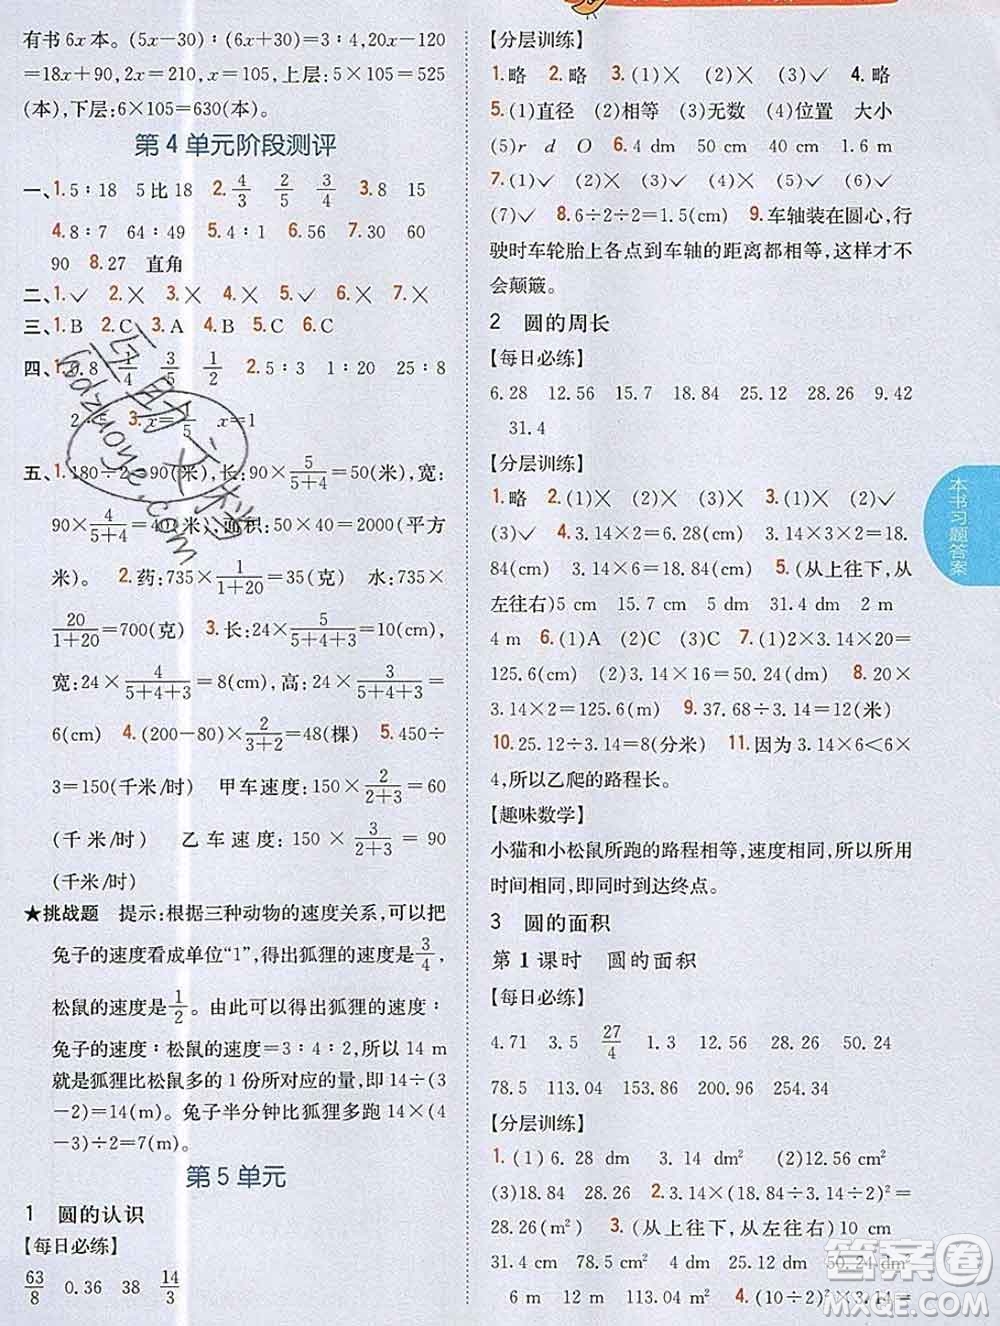 有书6x本。(5x－30)∶(6x＋30)＝3∶4,20x－120
＝18x＋90,2x＝210,x＝105,上层:5×105＝525
(本),下层:6×105＝630(本)。
第4单元阶段测评
一、1.5∶18 5比18 2.4/3 2/5 3/4 3.8 15
4.8∶7 64∶49 5.4∶1 6.56 7.30 60
90 8.27 直角
二、1.✓ 2.× 3.× 4.× 5.× 6.× 7.×
三、1.B 2.C 3.A 4.B 5.B 6.C
四、1.0.8 1/4 3/5 1/2 2.5∶3 1∶20 25∶8
五、1.180÷2＝90(米),长:90×5/(5＋4)＝50(米),宽:
90×4/(5＋4)＝40(米),面积:50×40＝2000(平方
米)。 2.药:735×1/(1＋20)＝35(克) 水:735×
20/(1＋20)＝700(克) 3.长:24×5/(5＋4＋3)＝10(cm),
宽:24×4/(5＋4＋3)＝8(cm),高:24×3/(5＋4＋3)＝
6(cm) 4.(200－80)×2/(3＋2)＝48(棵) 5.450÷
3＝150(千米/时) 甲车速度:150×2/(2＋3)＝60
(千米/时) 乙车速度:150×3/(2＋3)＝90
(千米/时)
★挑战题 提示:根据三种动物的速度关系,可以把
兔子的速度看成单位“1”,得出狐狸的速度是3/4,
松鼠的速度是1/2。由此可以得出狐狸的速度∶
兔子的速度∶松鼠的速度＝3∶4∶2,所以14 m
就是狐狸比松鼠多的1份所对应的量,即14÷(3
－2)＝14(m)。兔子半分钟比狐狸多跑14×(4
－3)÷2＝7(m)。
第5单元
1 圆的认识
【每日必练】
63/8 0.36 38 14/3
【分层训练】
1.略 2.略 3.(1)× (2)× (3)✓ 4.略
5.(1)直径 (2)相等 (3)无数 (4)位置 大小
(5)r d O 6.4 dm 9 dm 40 cm 1.6 m
7.(1)✓ (2)✓ (3)✓ (4)✓ (5)× (6)×
(7)✓ 8.6÷2÷2＝1.5(cm) 9.车轴装在圆心,行
驶时车轮胎上各点到车轴的距离都相等,这样才不
会颠簸。
2 圆的周长
【每日必练】
6.28 12.56 15.7 18.84 25.12 9.42
31.4
【分层训练】
1.略 2.略 3.(1)× (2)× (3)✓ (4)✓
(5)✓ 4.3.14×2×2 3.14×5 2×3.14
×3 3.14×6 3.14×12 5.(从上往下,从
左往右)5 cm 15.7 cm 5 dm 31.4 dm 2 m
4 m 6.(1)A (2)C (3)C 7.(1)2×3.14×20＝
125.6(cm) (2)125.6×10＝1256(cm) 8.6.28÷
3.14×2＝4(cm) 9.37.68÷3.14＝12(米)
10.25.12÷3.14＝8(分米) 11.因为3.14×6＜6×
4,所以乙爬的路程长。
【趣味数学】
小猫和小松鼠所跑的路程相等,速度相同,所以所用
时间相同,即同时到达终点。
3 圆的面积
第1课时 圆的面积
【每日必练】
4.71 3.5 27/4 1.3 28.26 12.56 50.24
78.5 113.04 153.86 200.96 254.34
【分层训练】
1.(1)6.28 dm 3.14 dm² (2)12.56 dm²
(3)18.84 28.26 2.3.14×(18.84÷3.14÷2)²＝
28.26(m²) 3.(从上往下,从左往右)10 cm
31.4 cm 78.5 cm² 4 dm 25.12 dm 50.24 dm²
6 m 12 m 113.04 m² 4.(1)50÷2×3.14＝
本书习题答案
答案圈
MXQE.COM